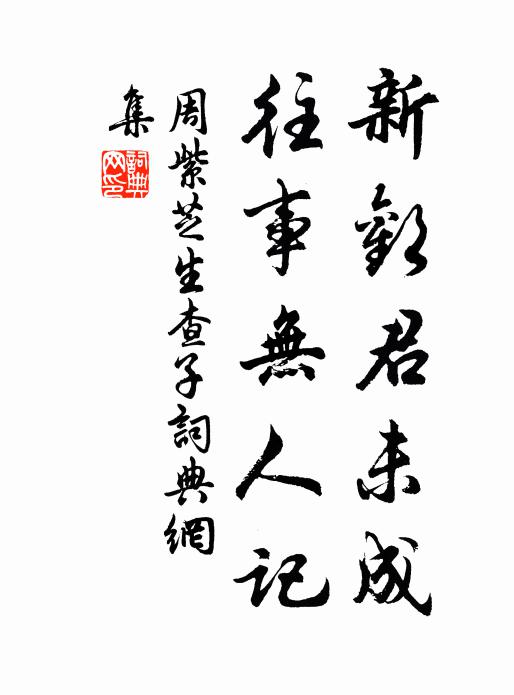 新歡君未成
往事無人記
周紫芝生查子詞典網
集
詞典網印